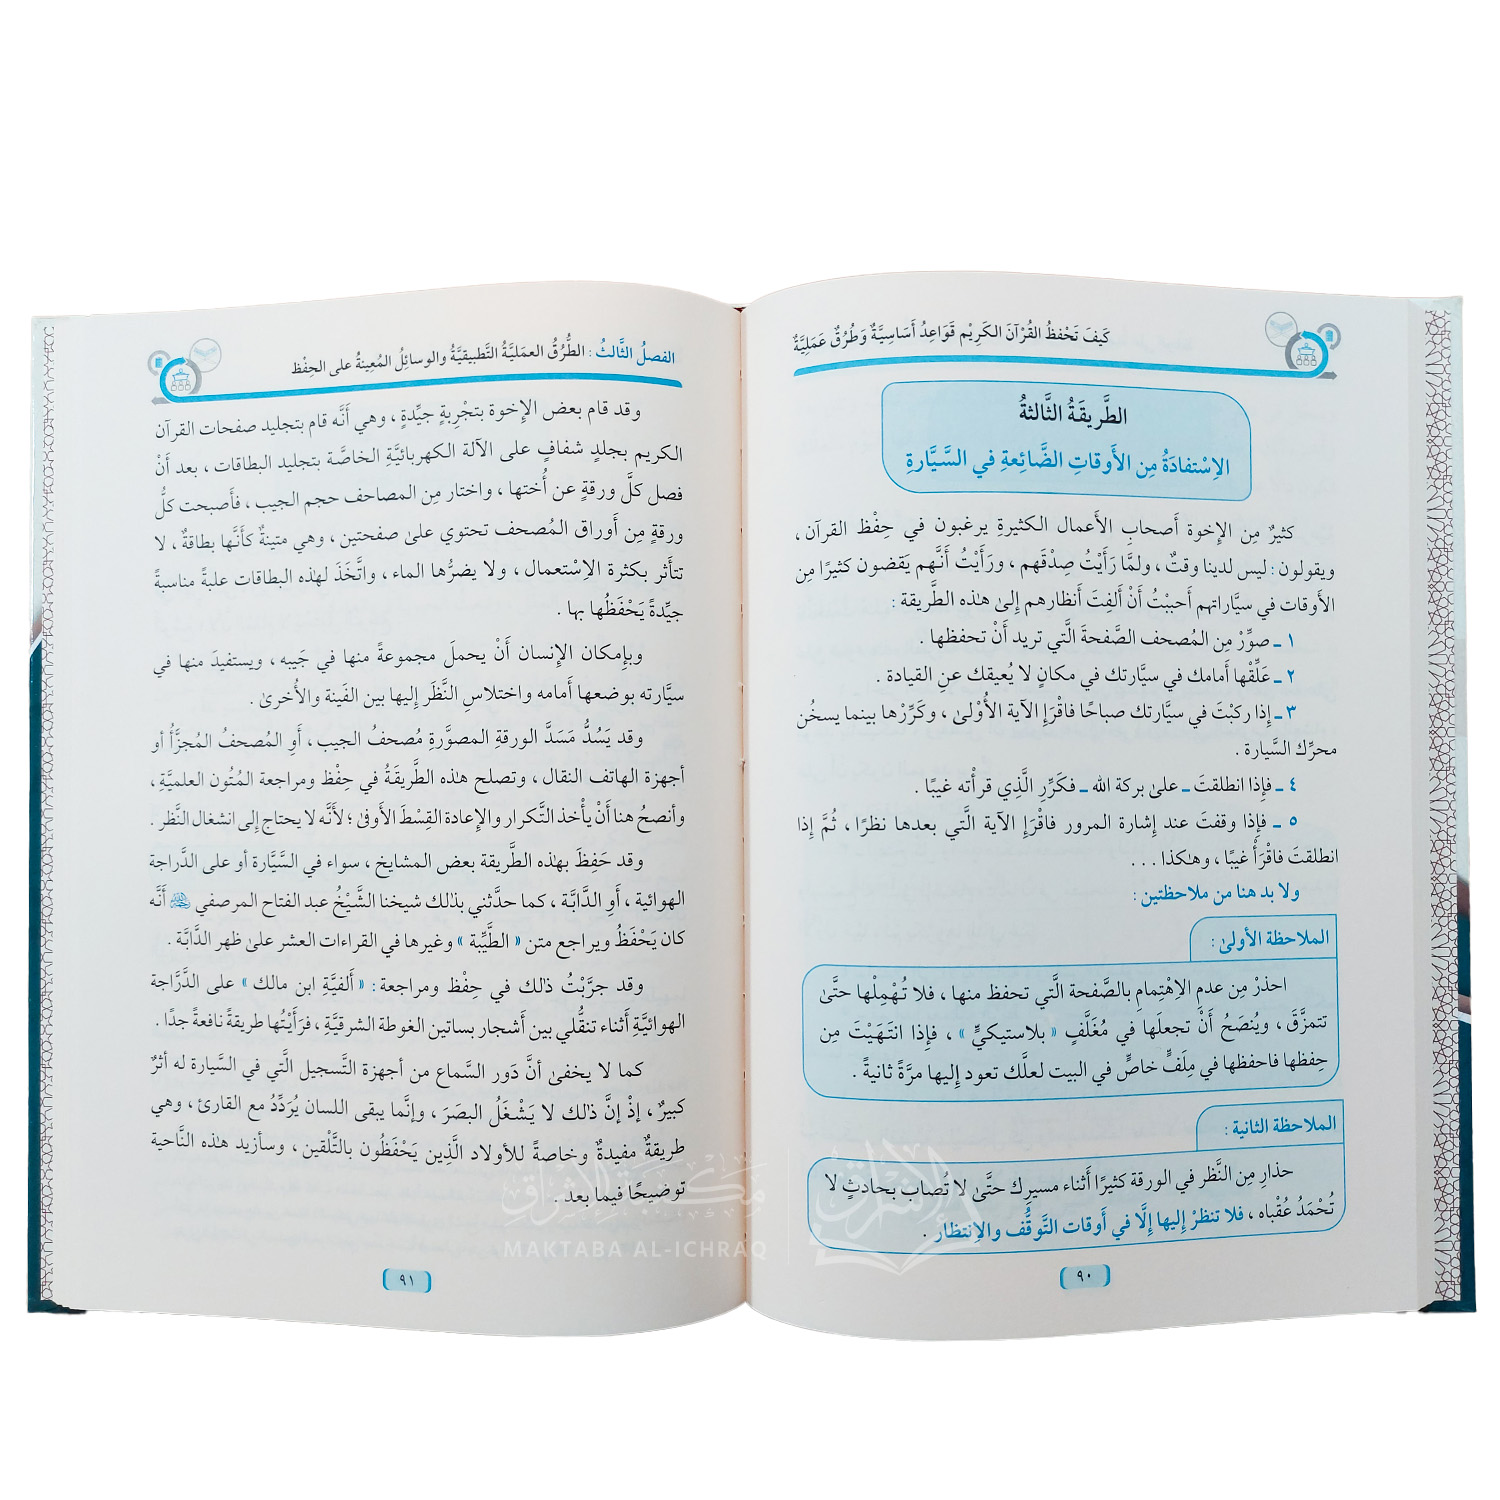 كَيفَ تَحْفظُ القُرْآنَ الكَرِيْم قَوَاعِدُ أَسَاسِيَّةٌ وَطُرُقٌ عَمَلِيَّةٌ
الطَّريقَةُ الثَّالثةُ
الاِسْتفادَةُ مِن الأَوقاتِ الضَّائِعةِ في السَّيَّارةِ
كثيرٌ مِن الإِخوة أَصحابِ الأَعمال الكثيرةِ يرغبون في حِفْظ القرآن ،
ويقولون : ليس لدينا وقتٌ ، ولمَّا رَأَيْتُ صِدْقَهم ، ورَأَيْتُ أَنَّهم يَقضون كثيرًا مِن
الأَوقات في سيَّاراتهم أَحببْتُ أَنْ أَلفِتَ أَنظارهم إِلىٰ هـٰذه الطَّريقة :
١ ـ صوِّرْ مِن المُصحف الصَّفحةَ الَّتي تريد أَنْ تحفظها .
٢ ـ عَلِّقْها أَمامك في سيَّارتك في مكانٍ لا يُعيقك عنِ القيادة .
٣ ـ إِذا ركبْتَ في سيَّارتك صباحًا فاقْرَإِ الآية الأُوْلىٰ ، وكَرِّرْها بينما يسخُن
محرِّك السَّيارة .
٤ ـ فإِذا انطلقتَ ـ علىٰ بركة الله ـ فكَرِّرِ الَّذِي قرأْته غيبًا .
٥ ـ فإِذا وقفتَ عند إِشارة المرور فاقْرَإِ الآية الَّتي بعدها نظرًا ، ثُمَّ إِذا
انطلقتَ فاقْرَأْ غيبًا ، وهـٰكذا . . .
ولا بد هنا من ملاحظتين :
الملاحظة الأولىٰ :
احذرْ مِن عدمِ الاِهْتِمامِ بالصَّفحة الَّتي تحفظ منها ، فلا تُهْمِلْها حتَّىٰ
تتمزَّقَ ، ويُنصَحُ أَنْ تجعلَها في مُغَلَّفٍ « بلاستيكيٍّ » ، فإِذا انتَهَيْتَ مِن
حِفظها فاحفظها في مِلَفٍّ خاصٍّ في البيت لعلَّك تعود إِليها مرَّةً ثانيةً .
الملاحظة الثانية :
حذارِ مِن النَّظر في الورقة كثيرًا أَثناء مسيرِك حتَّىٰ لا تُصاب بحادثٍ لا
تُحْمَدُ عُقْباه ، فلا تنظرْ إِليها إِلَّا في أَوقات التَّوقُّف والاِنتظار .
٩٠
الفصلُ الثَّالثُ : الطُّرُقُ العمَليَّةُ التَّطبيقيَّةُ والوسائِلُ المُعِينةُ على الحِفْظ
وقد قام بعض الإِخوة بتجْرِبةٍ جيِّدةٍ ، وهي أَنَّه قام بتجليد صفحات القرآن
الكريم بجلدٍ شفافٍ على الآلة الكهربائيَّةِ الخاصَّة بتجليد البطاقات ، بعد أَنْ
فصل كلَّ ورقةٍ عن أُختها ، واختار مِن المصاحف حجم الجيب ، فأَصبحت كلُّ
ورقةٍ مِن أَوراق المُصحف تحتوي علىٰ صفحتين ، وهي متينةٌ كأَنَّها بطاقةٌ ، لا
تتأَثر بكثرة الاِسْتعمال ، ولا يضرُّها الماء ، واتَّخَذَ لهذه البطاقات علبةً مناسبةً
جيِّدةً يَحْفَظُها بها .
وبإِمكان الإِنسان أَنْ يحملَ مجموعةً منها في جَيبه ، ويستفيدَ منها في
سيَّارته بوضعها أَمامه واختلاسِ النَّظَر إِليها بين الفَينة والأُخرىٰ .
وقد يَسُدُّ مَسَدَّ الورقةِ المصوَّرةِ مُصحفُ الجيب ، أَوِ المُصحفُ المُجزَّأُ أو
أجهزة الهاتف النقال ، وتصلح هـٰذه الطَّريقَةُ في حِفْظ ومراجعة المُتُون العلميَّةِ ،
وأَنصحُ هنا أَنْ يأْخذ التَّكرار والإِعادة القِسْطَ الأَوفىٰ ؛ لأَنَّه لا يحتاج إِلى انشغال النَّظر .
وقد حَفِظَ بهـٰذه الطَّريقة بعض المشايخ ، سواء في السَّيَّارة أو على الدَّراجة
الهوائية ، أَوِ الدَّابَّة ، كما حدَّثني بذٰلك شيخنا الشَّيْخُ عبد الفتاح المرصفي أَنَّه
كان يَحْفَظُ ويراجع متن « الطَّيِّبة » وغيرها في القراءات العشر علىٰ ظهر الدَّابَّة .
وقد جرَّبْتُ ذٰلك في حِفْظ ومراجعة : « أَلفيَّةِ ابن مالك » على الدَّرَّاجة
الهوائيَّةِ أَثناء تنقُّلي بين أَشجار بساتين الغوطة الشرقيَّةِ ، فرَأَيْتُها طريقةً نافعةً جدًا .
كما لا يخفىٰ أنَّ دَور السَّماع من أجهزة التَّسجيل الَّتي في السَّيارة له أثرٌ
كبيرٌ ، إذْ إنَّ ذٰلك لا يَشْغَلُ البصَرَ ، وإنَّما يبقى اللسان يُرَدِّدُ مع القارئ ، وهي
طريقةٌ مفيدةٌ وخاصةً للأولاد الَّذِين يَحْفَظُون بالتَّلْقين ، وسأزيد هـٰذه النَّاحية
توضيحًا فيما بعد .
٩١
مكتبة الإشراق
MAKTABA AL-ICHRAQ
الإشراق